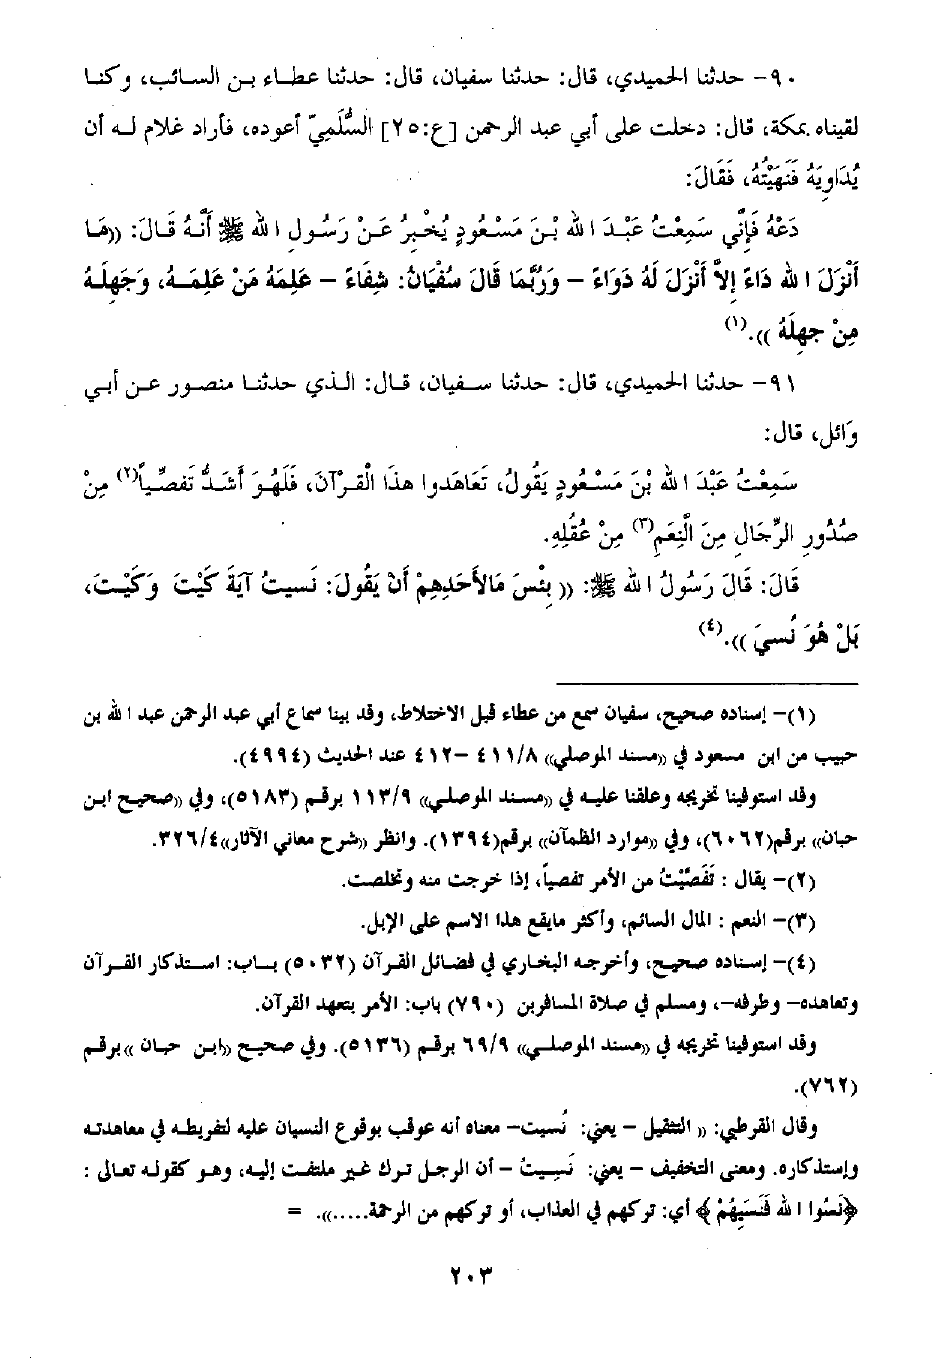 ٩٠- حدثنا الحميدي، قال: حدثنا سفيان، قال: حدثنا عطاء بن السائب، وكنا
لقيناه بمكة، قال: دخلت على أبي عبد الرحمن [ع:٢٥] السُّلَمِيّ أعوده، فأراد غلام له أن
يُدَاوِيَهُ فَنَهَيْتُهُ، فَقَالَ:
دَعْهُ فَإنِّي سَمِعْتُ عَبْدَ الله بْنَ مَسْعُودٍ يُخْبِرُ عَنْ رَسُولِ الله ﷺ أَنَّهُ قَالَ: ((مَا
أَنْزَلَ الله دَاءً إلاَّ أَنْزَلَ لَهُ دَوَاءً – وَرُبَّمَا قَالَ سُفْيَانُ: شِفَاءً – عَلِمَهُ مَنْ عَلِمَهُ، وَجَهِلَهُ
مِنْ جَهِلَهُ )).(١)
٩١- حدثنا الحميدي، قال: حدثنا سفيان، قال: الذي حدثنا منصور عن أبي
وَائل، قال:
سَمِعْتُ عَبْدَ الله بْنَ مَسْعُودٍ يَقُولُ، تَعَاهَدوا هذَا الْقُرآنَ، فَلَهُوَ أَشَدُّ تَفصِّياً(٢) مِنْ
صُدُورِ الرِّجَالِ مِنَ النِّعَمِ(٣) مِنْ عُقُلِهِ.
قَالَ: قَالَ رَسُولُ الله ﷺ: (( بِئْسَ مَالأَحَدِهِمْ أَنْ يَقُولَ: نَسيتُ آيَةَ كَيْتَ وَكَيْتَ،
بَلْ هُوَ نُسيَ )).(٤)
(١)- إسناده صحيح، سفيان سمع من عطاء قبل الاختلاط، وقد بينا سماع أبي عبد الرحمن عبد الله بن
حبيب من ابن مسعود في «مسند الموصلي» ٤١١/٨ -٤١٢ عند الحديث (٤٩٩٤).
وقد استوفينا تخريجه وعلقنا عليه في «مسند الموصلي» ١١٣/٩ برقم (٥١٨٣)، وفي «صحيح ابن
حبان» برقم(٦٠٦٢)، وفي «موارد الظمآن» برقم(١٣٩٤). وانظر «شرح معاني الآثار»٣٢٦/٤.
(٢)- يقال : تَفَصَّيْتُ من الأمر تفصياً، إذا خرجت منه وتخلصت.
(٣)- النعم : المال السائم، وأكثر مايقع هذا الاسم على الإبل.
(٤)- إسناده صحيح، وأخرجه البخاري في فضائل القرآن (٥٠٣٢) باب: استذكار القرآن
وتعاهده- وطرفه-، ومسلم في صلاة المسافرين (٧٩٠) باب: الأمر بتعهد القرآن.
وقد استوفينا تخريجه في «مسند الموصلي» ٦٩/٩ برقم (٥١٣٦). وفي صحيح «ابن حبان »برقم
(٧٦٢).
وقال القرطبي: « التثقيل – يعني: نُسيت- معناه أنه عوقب بوقوع النسيان عليه لتفريطه في معاهدته
وإستذكاره. ومعنى التخفيف – يعني: نَسِيتُ – أن الرجل ترك غير ملتفت إليه، وهو كقوله تعالى :
﴿نَسُوا الله فَنَسِيَهُمْ﴾ أي: تركهم في العذاب، أو تركهم من الرحمة.....». =
٢٠٣